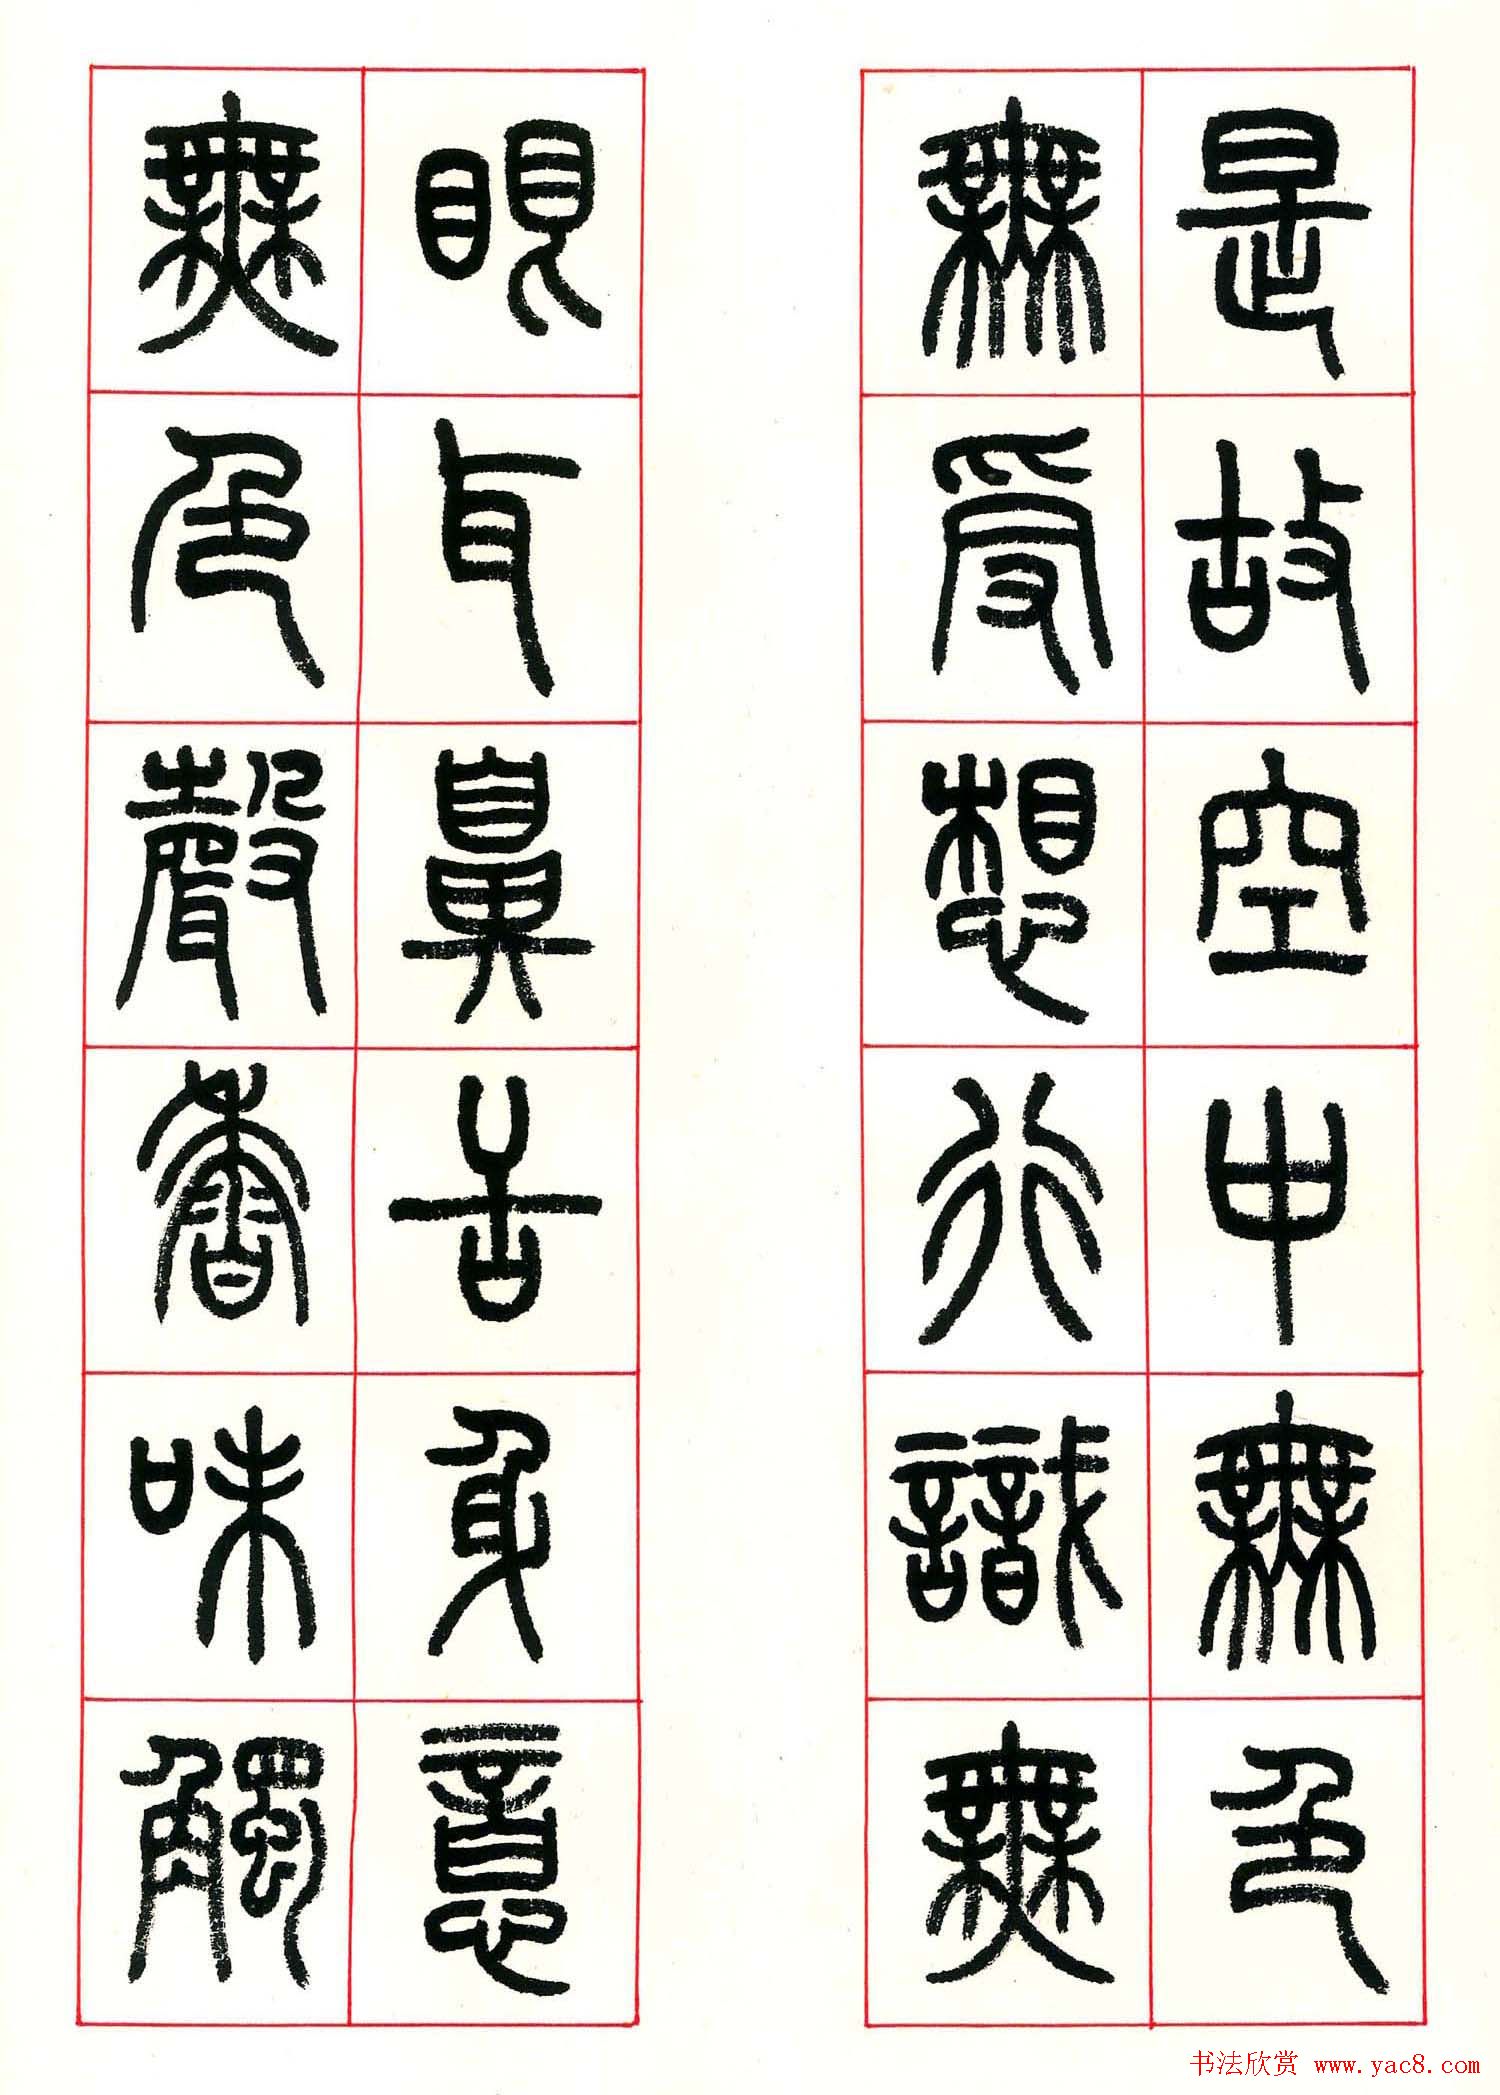 是故空中無色
無受想行識無
眼耳鼻舌身意
無色聲香味觸
书法欣赏 www.yac8.com